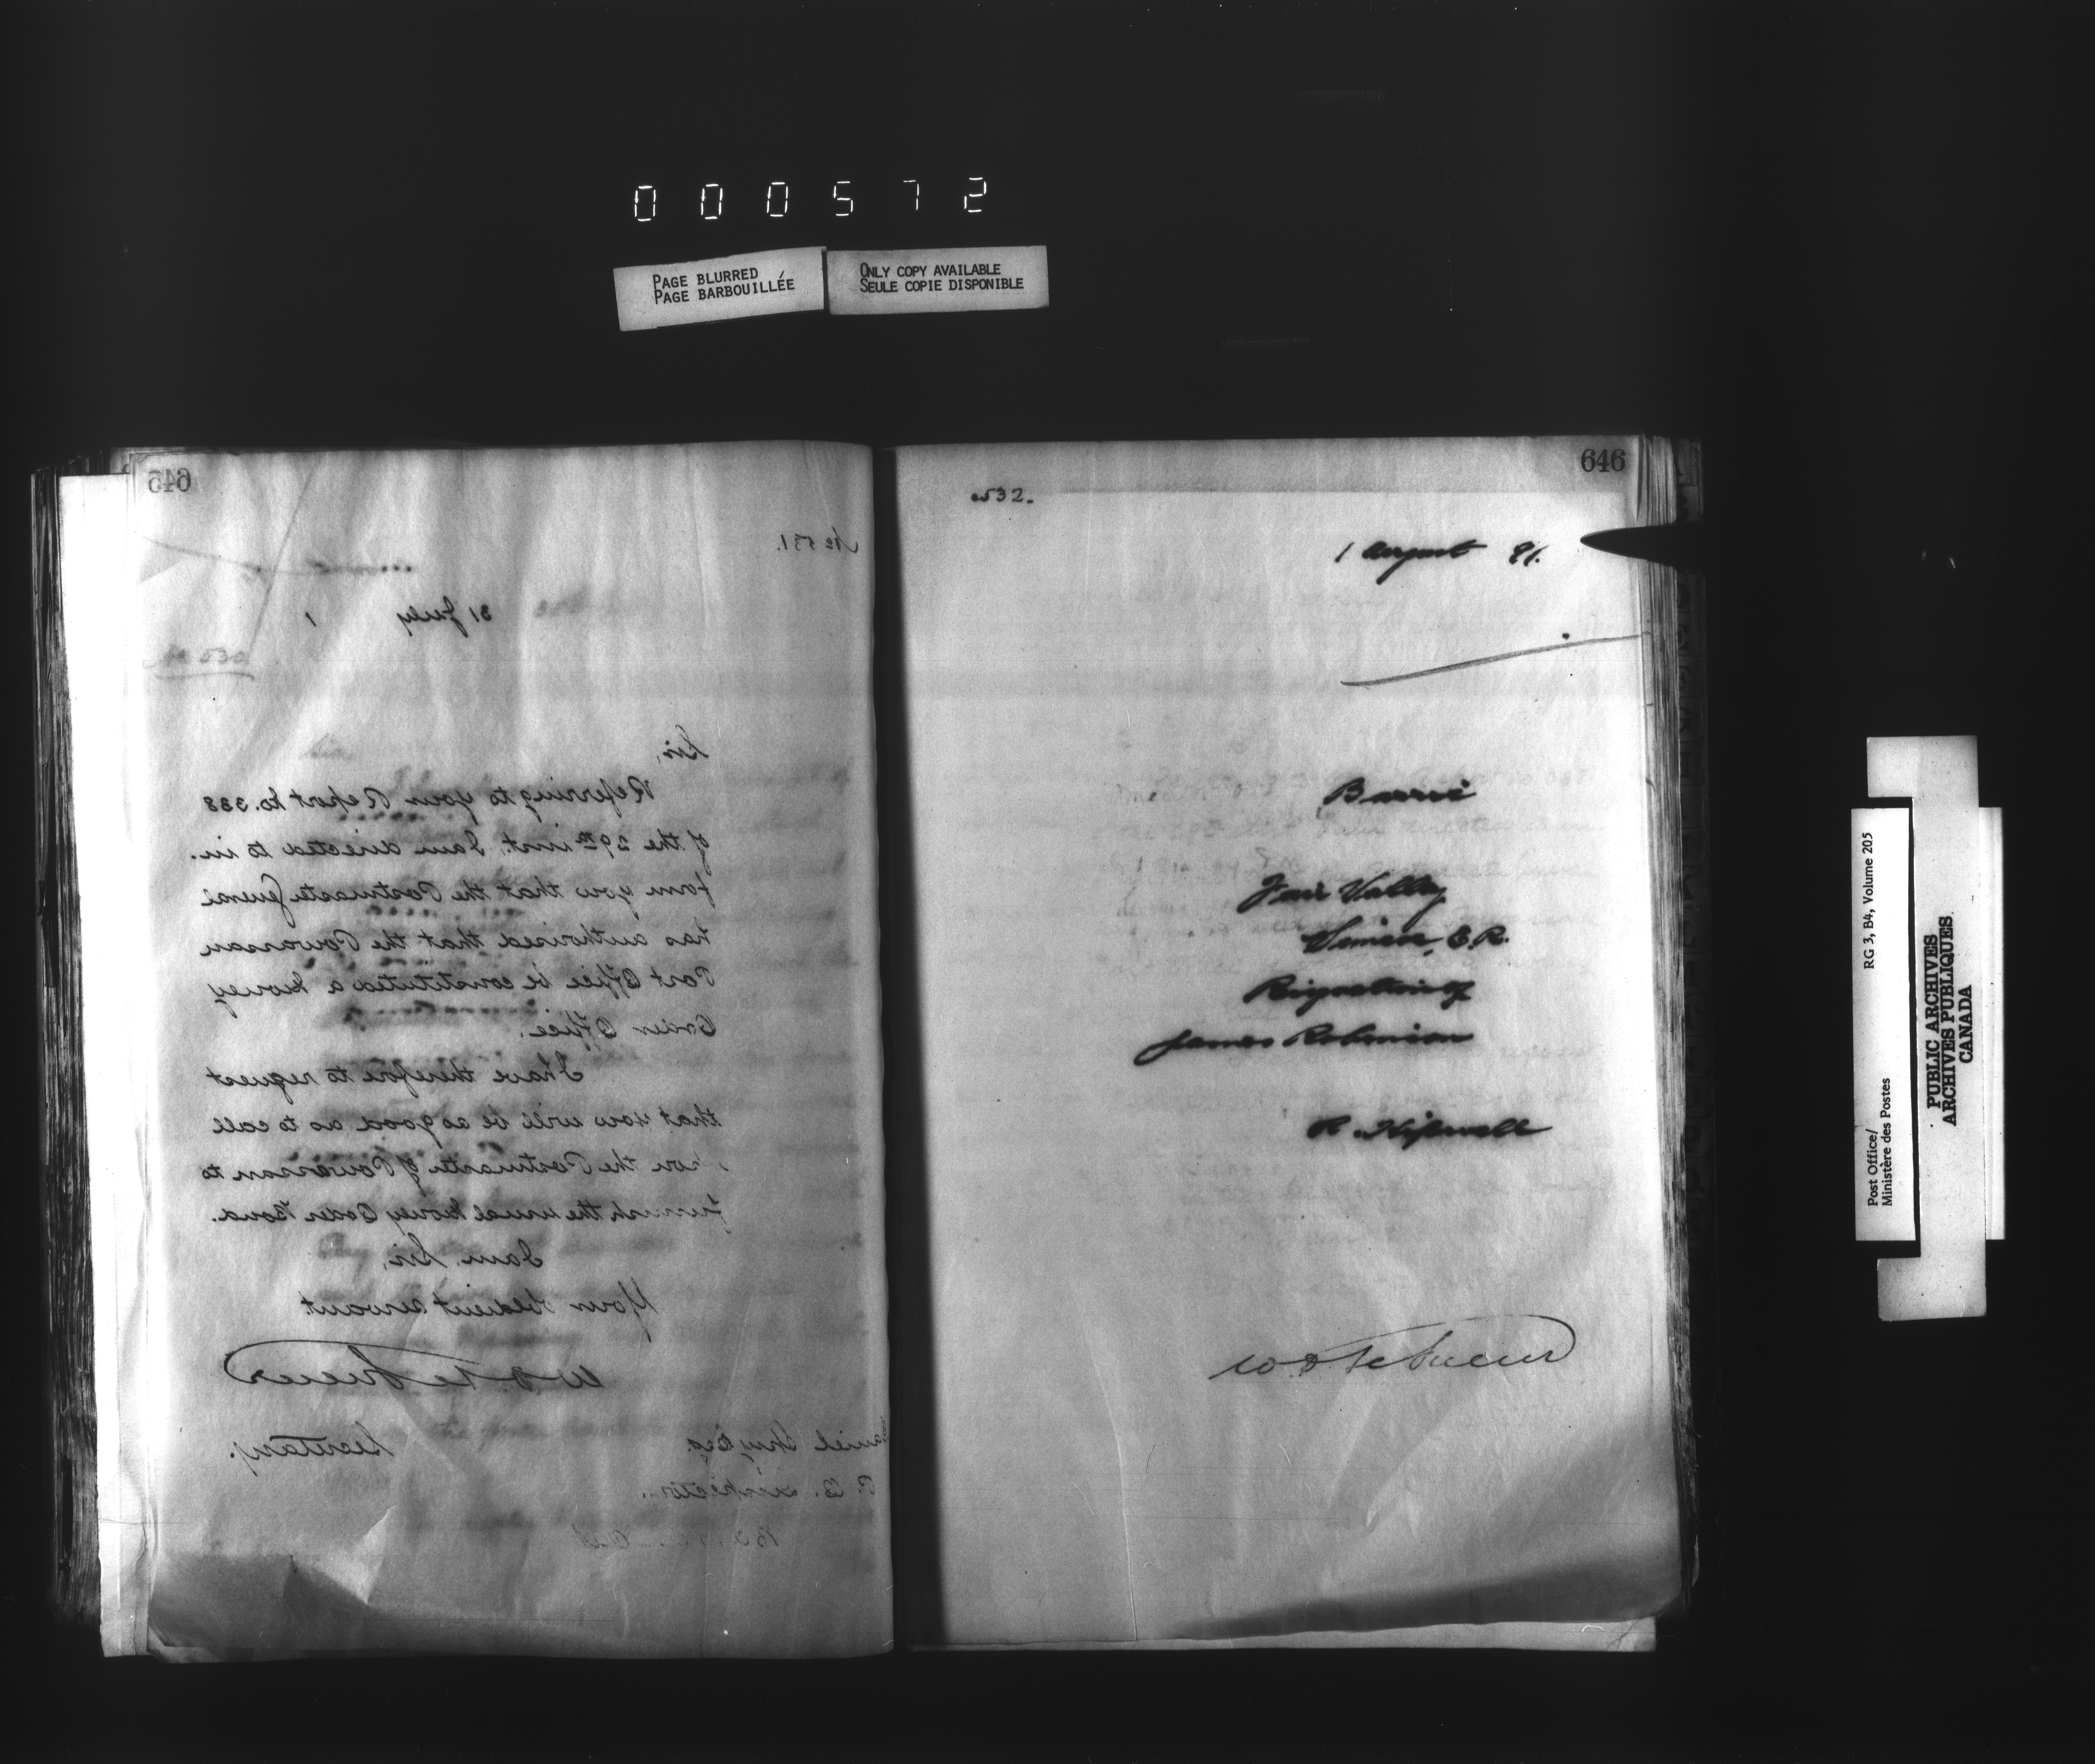 000572
PAGE BLURRED
PAGE BARBOUILLÉE
ONLY COPY AVAILABLE
SEULE COPIE DISPONIBLE
645
No 531.
31 July 1
No 530
Sir,
Referring to your Report No. 338
of the 29th inst. I am directed to in-
form you that the Postmaster General
has authorised that the Powassan
Post Office be constituted a Money
Order Office.
I have therefore to request
that you will be as good as to call
on the Postmaster of Powassan to
furnish the usual Money Order Bond.
I am, Sir,
Your obedient servant
W D LeSueur
Secretary.
Daniel Spry Esq
P. O. Inspector.
646
532.
1 August 91.
Barrie
Fair Valley
Simcoe, E.R.
Resignation of
James Robinson
R. Hipwell
W D LeSueur
Post Office/
Ministère des Postes
RG 3, B4, Volume 205
PUBLIC ARCHIVES
ARCHIVES PUBLIQUES
CANADA